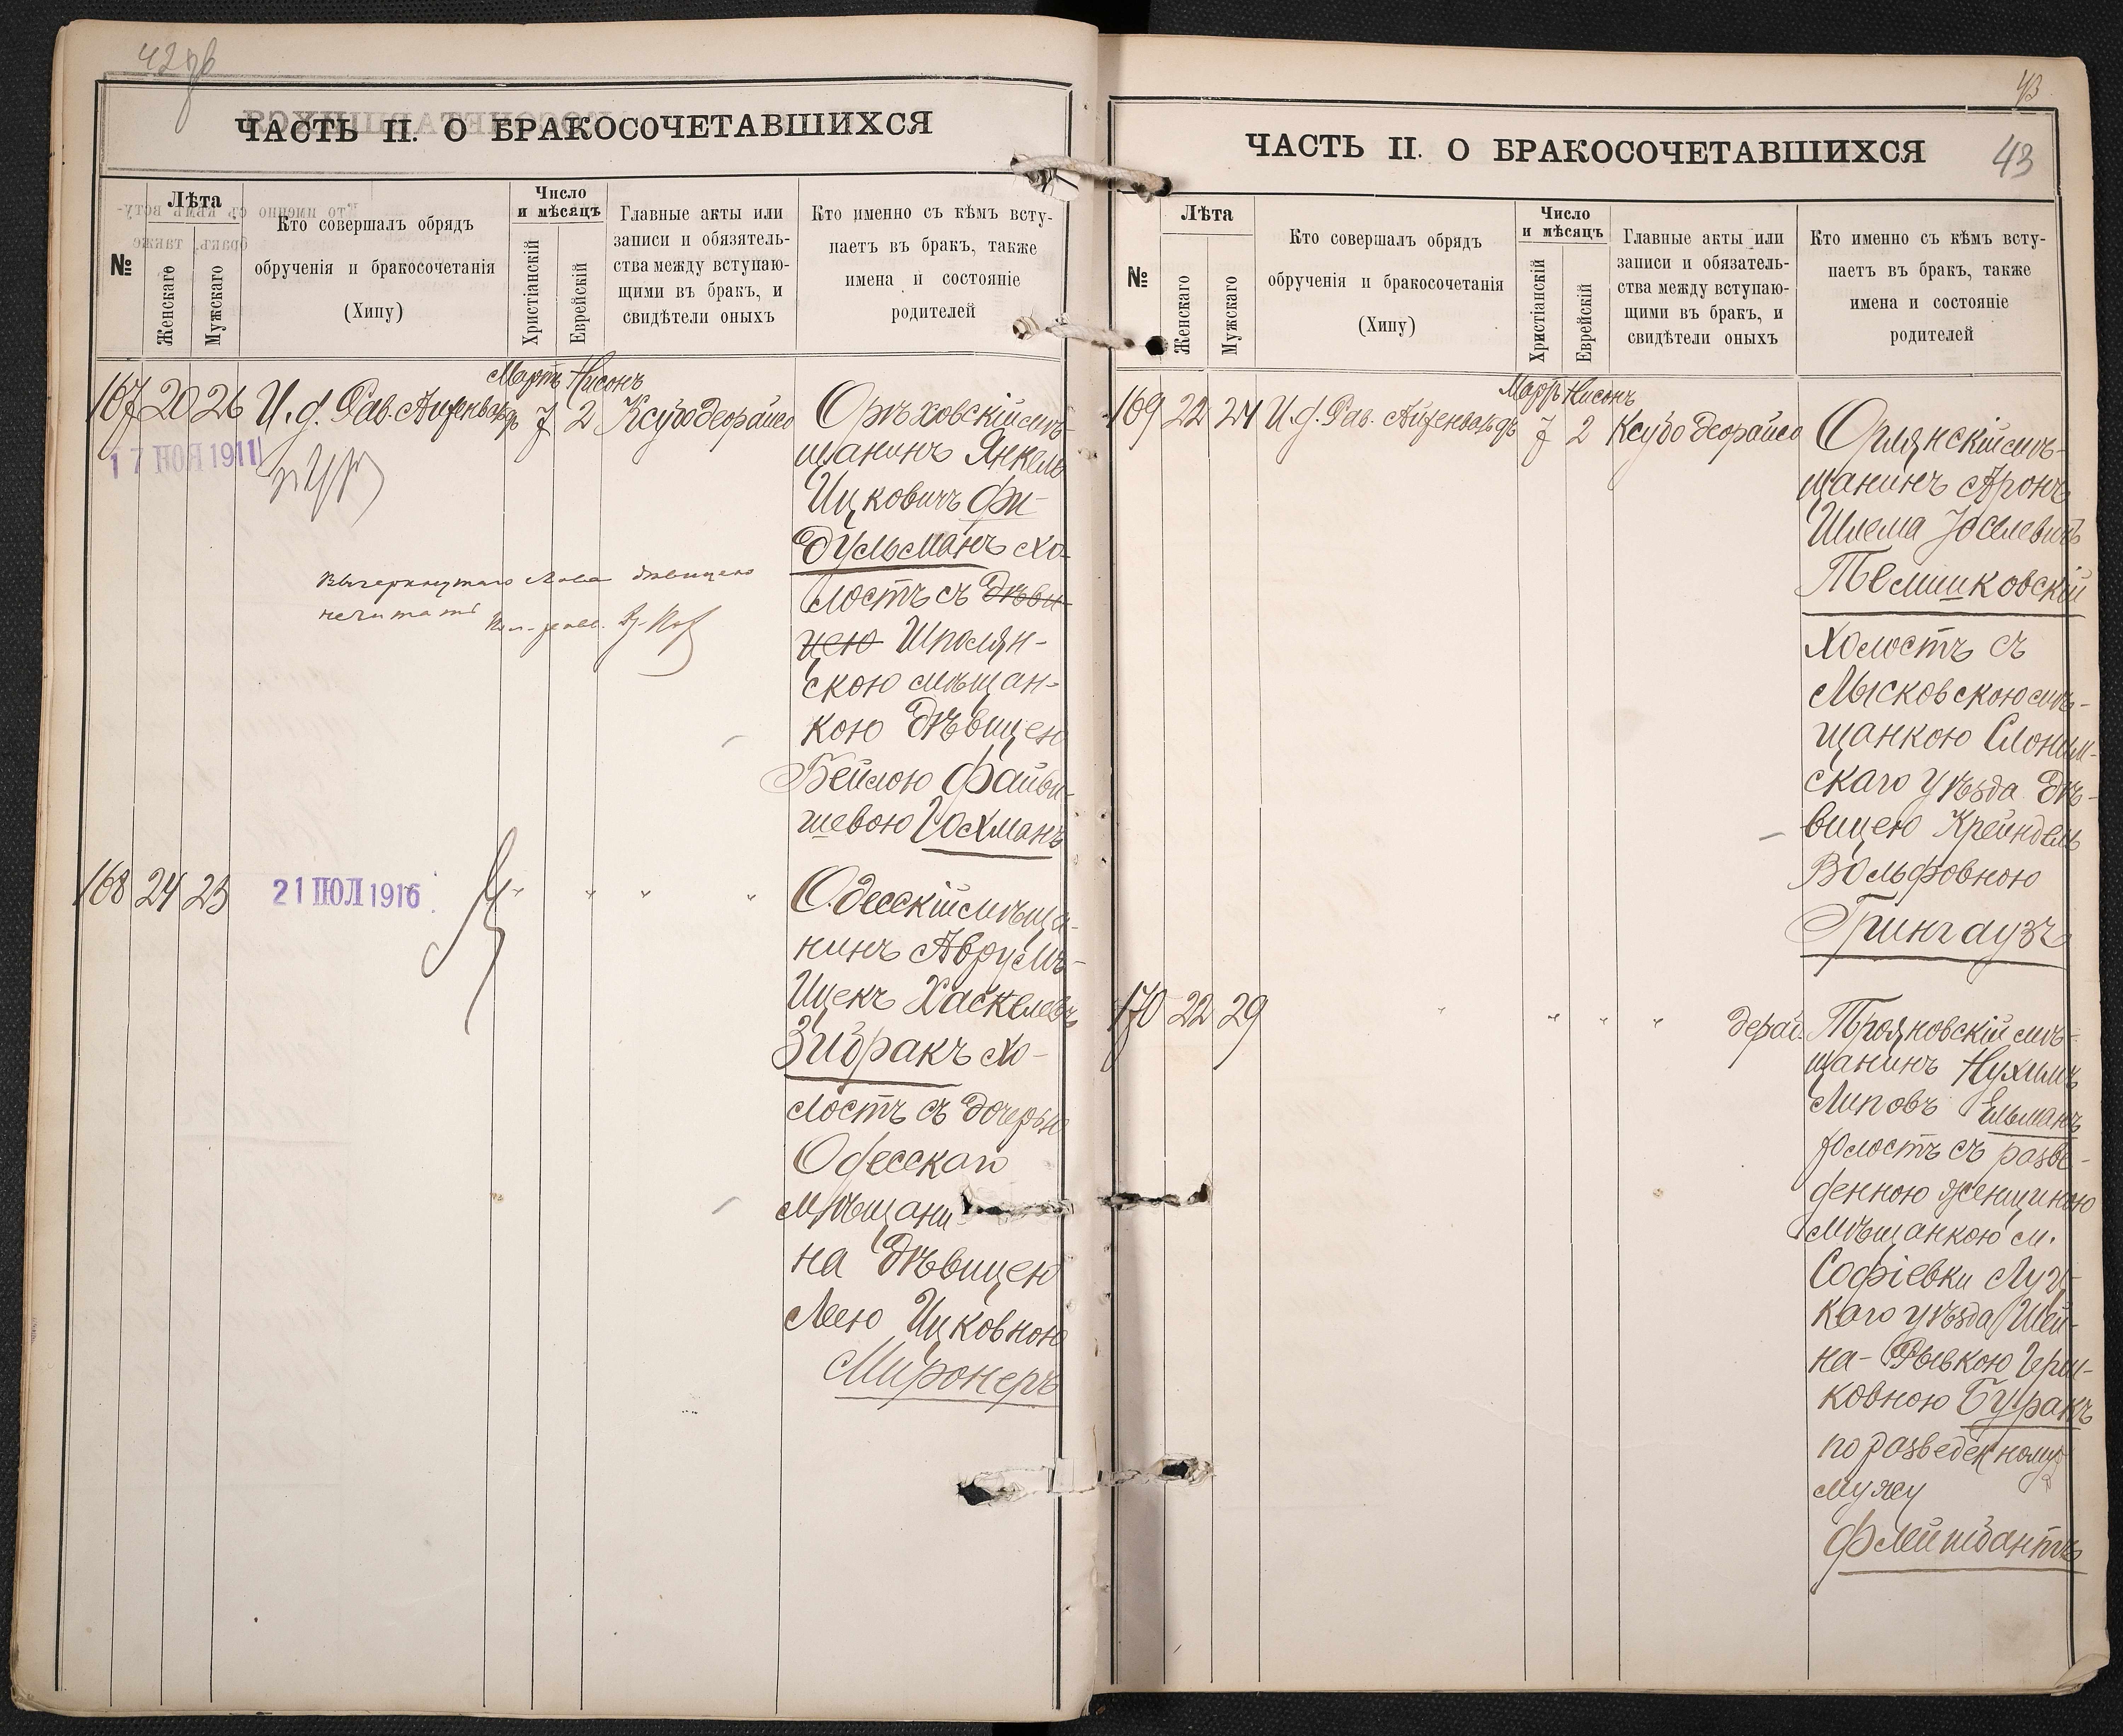 42 об
ЧАСТЬ II. О БРАКОСОЧЕТАВШИХСЯ
№
Лѣта
Женскаго
Мужскаго
Кто совершалъ обрядъ
обрученія и бракосочетанія
(Хипу)
Число
и мѣсяцъ
Христіанскій
Еврейскій
Главные акты или
записи и обязятель-
ства между вступаю-
щими въ бракъ, и
свидѣтели оныхъ
Кто именно съ кѣмъ всту-
паетъ въ бракъ, также
имена и состояніе
родителей
Мартъ Нисонъ
167 20 26 И. д. Рав. Айзенвальдъ 7 2 Ксубо деорайсо
17 НОЯ 1911
Орѣховскій мѣ-
щанинъ Янкель
Ицковичъ Фи-
дульманъ хо-
лостъ съ дѣви-
цею Шполян-
скою мѣщан-
кою дѣвицею
Бейлою Файви-
шевою Гохманъ
Вычеркнутаго слова дѣвицею
не читать
168 24 23 " " " "
21 ІЮЛ 1916
Одесскій мѣща-
нинъ Аврумъ-
Ицекъ Хаскелевъ
Зидракъ хо-
лостъ съ дочерью
Одесскаго
мѣщани-
на дѣвицею
Леею Ицковною
Миронеръ
43
ЧАСТЬ II. О БРАКОСОЧЕТАВШИХСЯ
43
№
Лѣта
Женскаго
Мужскаго
Кто совершалъ обрядъ
обрученія и бракосочетанія
(Хипу)
Число
и мѣсяцъ
Христіанскій
Еврейскій
Главные акты или
записи и обязатель-
ства между вступаю-
щими въ бракъ, и
свидѣтели оныхъ
Кто именно съ кѣмъ всту-
паетъ въ бракъ, также
имена и состояніе
родителей
Мартъ Нисонъ
169 22 24 И. д. Рав. Айзенвальдъ 7 2 Ксубо деорайсо
Орлянскій мѣ-
щанинъ Аронъ
Шлема Іоселевичъ
Темшиковскій
холостъ съ
Лысковскою мѣ-
щанкою Слоним-
скаго уѣзда дѣ-
вицею Крейндель
Вольфовною
Грингаузъ
170 22 29 " " " " дерай.
Трояновскій мѣ-
щанинъ Нухимъ
Липовъ Ельманъ
холостъ съ разве-
денною женщиною
мѣщанкою м.
Софіевки Луц-
каго уѣзда Шей-
на-Рывкою Герш-
ковною Буракъ
по разведенному
мужу